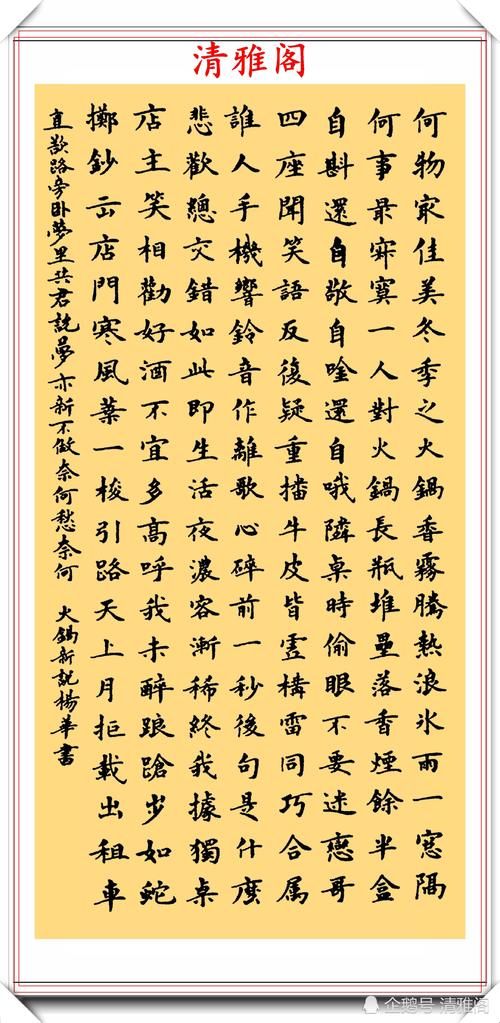 清雅阁
何物冣佳美冬季之火鍋香霧騰熱浪氷雨一窓隔
何事最寂寞一人對火鍋長瓶堆壘落香煙餘半盒
自斟還自敬自唫還自哦隣桌時偷眼不要迷戀哥
四座聞笑語反復疑重播牛皮皆雲構雷同巧合属
誰人手機響鈴音作離歌心碎前一秒後句是什麼
悲歡總交錯如此即生活夜濃客漸稀終我據獨桌
店主笑相勸好酒不宜多高呼我未醉踉蹌步如蛇
擲鈔出店門寒風葉一梭引路天上月拒載出租車
直欲路旁卧夢里共君説夢亦新不做奈何愁奈何 火鍋新説楊華書
企鹅号 清雅阁